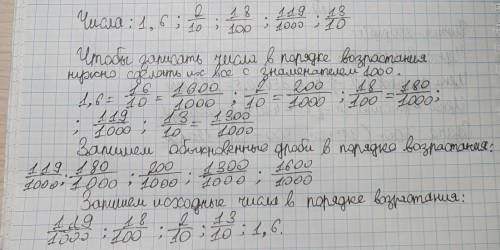 Числа: 1,6 ; 2/10 ; 18/100 ; 119/1000 ; 13/10
Чтобы записать числа в порядке возрастания
нужно сделать их все с знаменателем 1000.
1,6 = 16/10 = 1600/1000 ; 2/10 = 200/1000 ; 18/100 = 180/1000 ;
; 119/1000 ; 13/10 = 1300/1000
Запишем обыкновенные дроби в порядке возрастания:
119/1000 ; 180/1000 ; 200/1000 ; 1300/1000 ; 1600/1000
Запишем исходные числа в порядке возрастания:
119/1000 ; 18/100 ; 2/10 ; 13/10 ; 1,6.